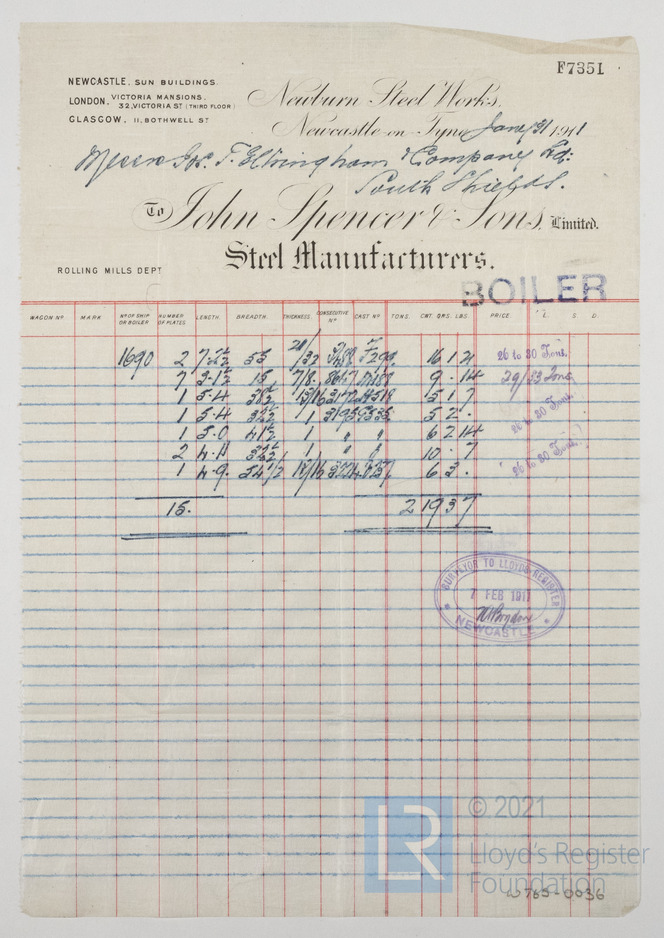 F7351
NEWCASTLE, SUN BUILDINGS.
LONDON, VICTORIA MANSIONS,
32, VICTORIA ST (THIRD FLOOR)
GLASGOW, 11, BOTHWELL ST
Newburn Steel Works,
Newcastle-on-Tyne, 31 1911
Messrs Jos. T. Eltringham & Company Ltd:
South Shields.
To John Spencer & Sons, Limited.
Steel Manufacturers.
ROLLING MILLS DEPT
BOILER
WAGON No. MARK No OF SHIP OR BOILER NUMBER OF PLATES LENGTH. BREADTH. THICKNESS. CONSECUTIVE No CAST No TONS. CWT. QRS. LBS PRICE. £ S D.
1690 2 55 16 1 21 26 to 30 Tons.
7 15 7/8 9 . 14 29/33 Tons
1 5.4 5 1 7
1 5.4 1 5 2 . 26 to 30 Tons.
1 5.0 41½ 1 " " 6 2 14
2 4.11 1 " " 10 . 7
1 4.9. 54 1/2 6 3 . 26 to 30 Tons.
15. 2 19 3 7
SURVEYOR TO LLOYDS REGISTER
7 FEB 1911
NEWCASTLE
LR © 2021
Lloyd's Register
Foundation
W765-0036